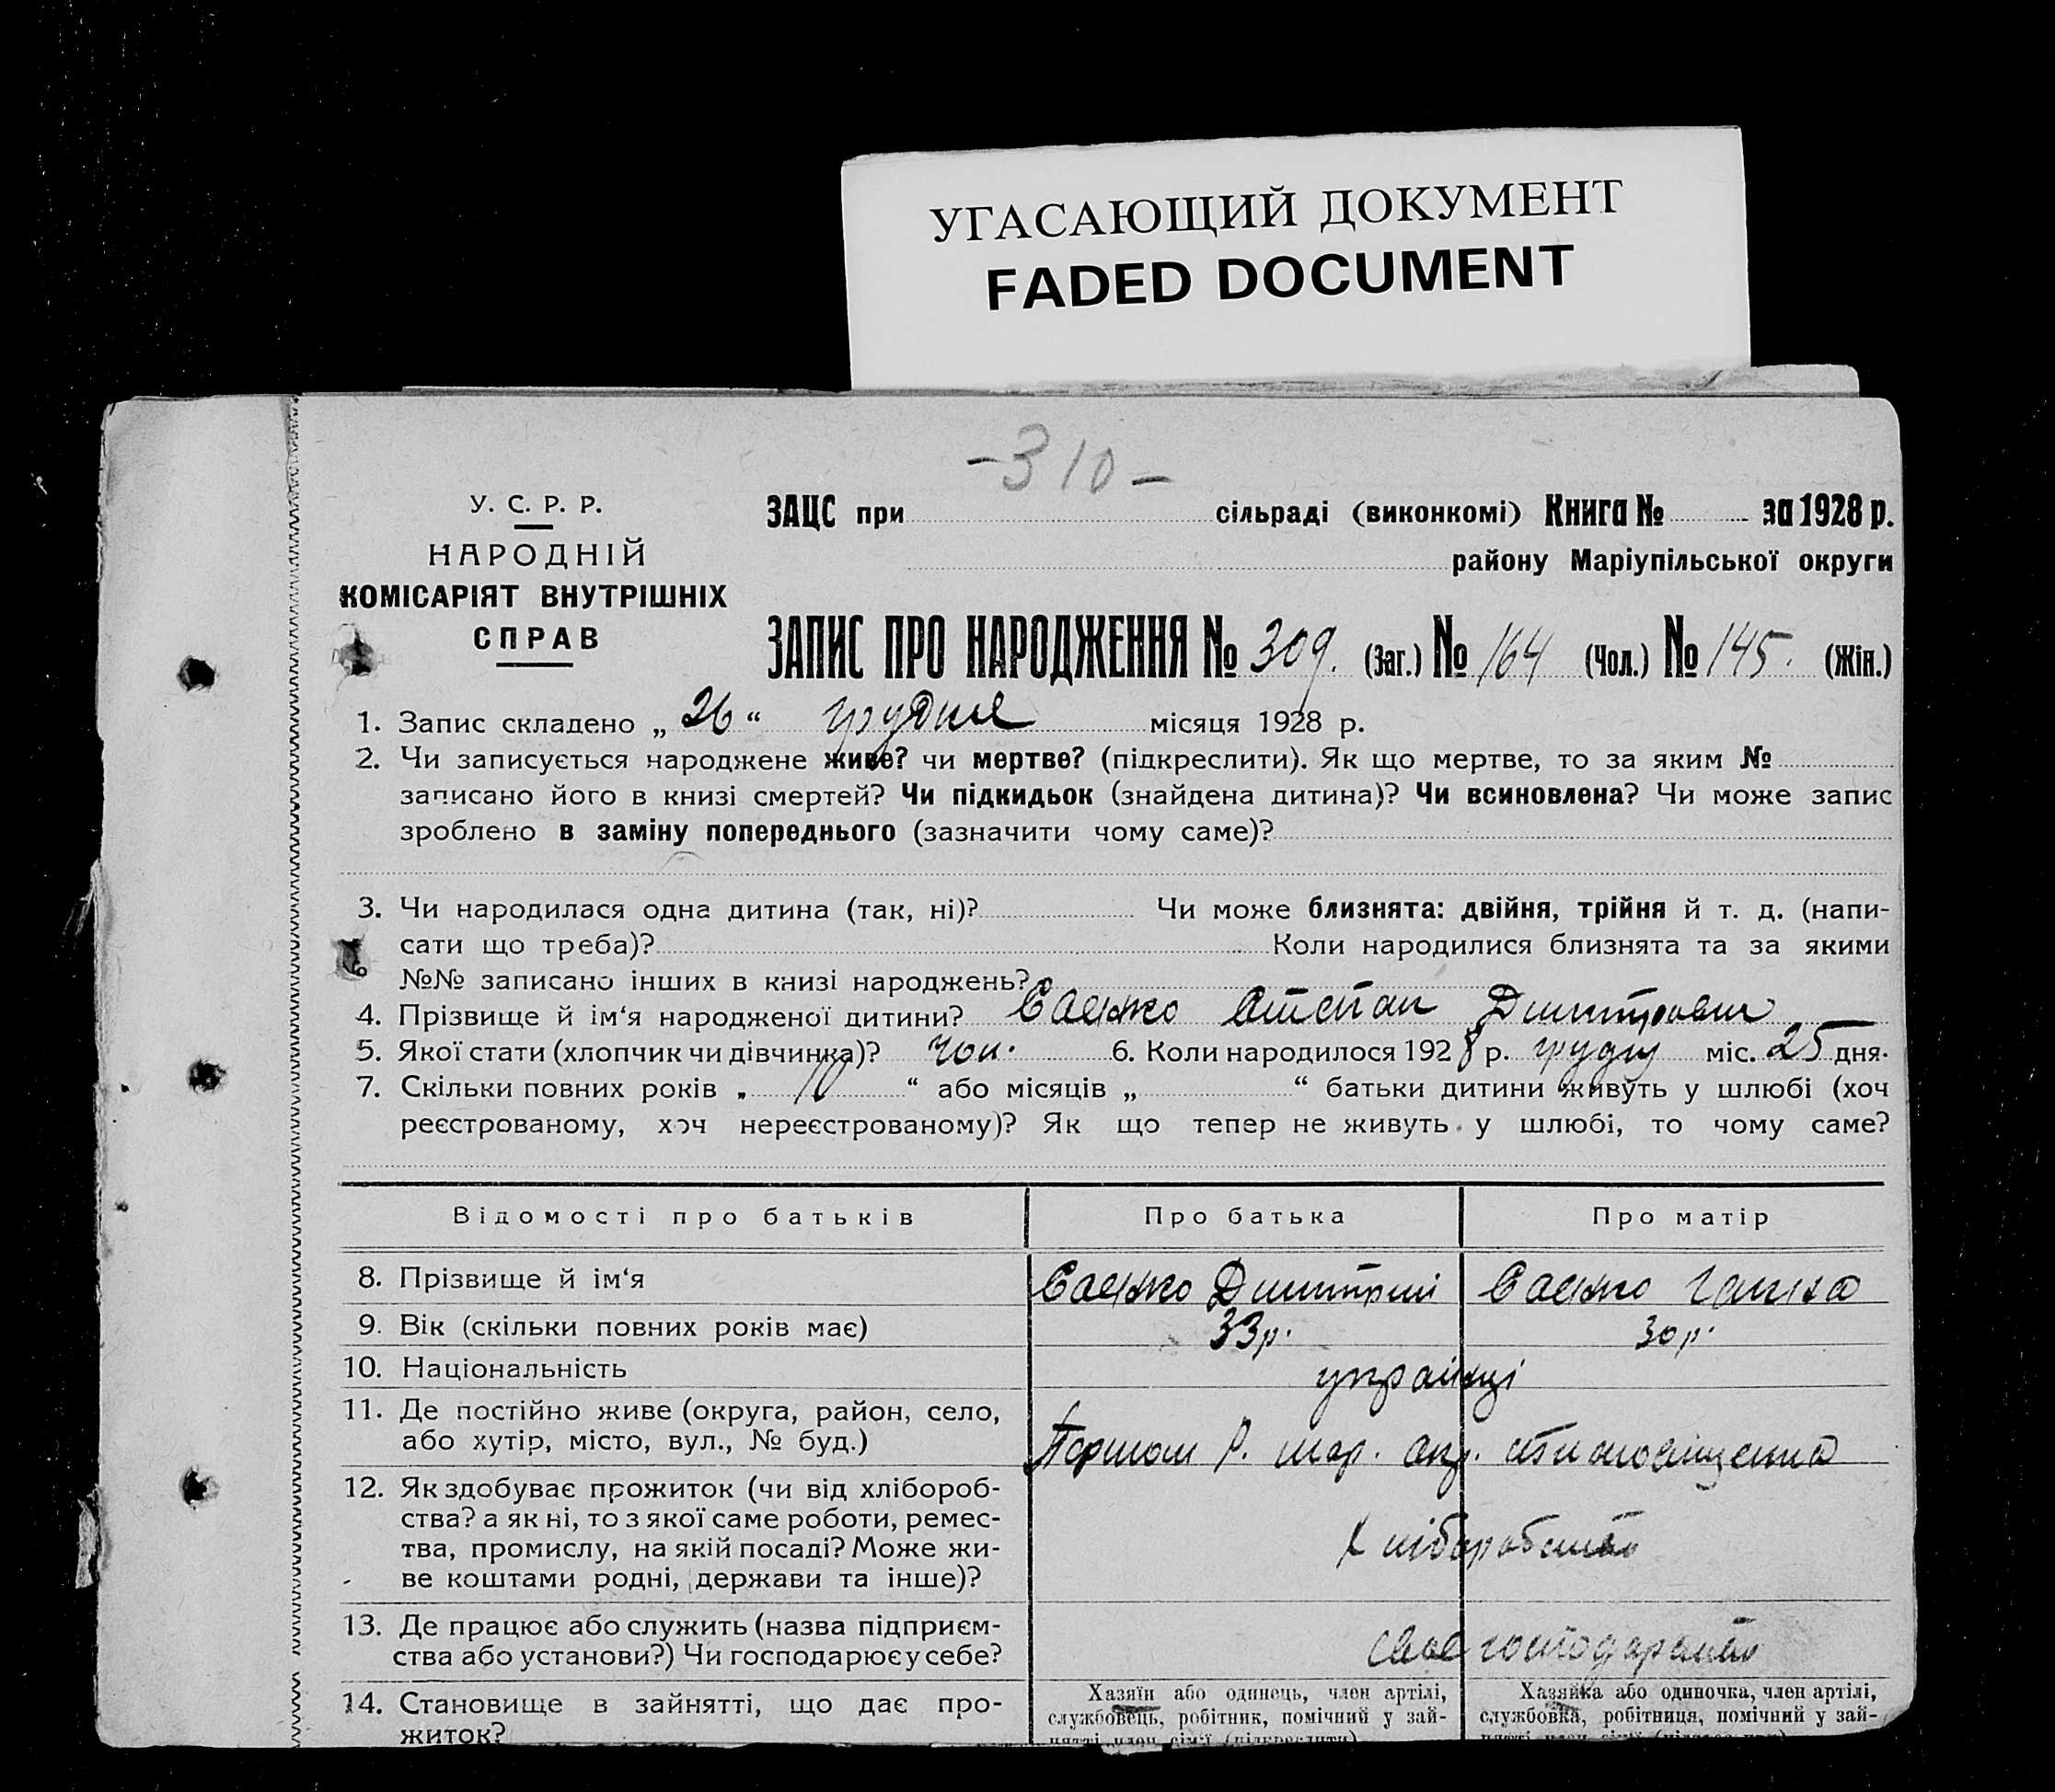 УГАСАЮЩИЙ ДОКУМЕНТ
FADED DOCUMENT
-310-
У. С. Р. Р.
НАРОДНІЙ
КОМІСАРІЯТ ВНУТРІШНІХ
СПРАВ
ЗАЦС при сільраді (виконкомі) Книга № за 1928 р.
району Маріупільської округи
ЗАПИС ПРО НАРОДЖЕННЯ № 309. (Заг.) № 164 (Чол.) № 145. (Жін.)
1. Запис складено „ 26 “ грудня місяця 1928 р.
2. Чи записується народжене живе? чи мертве? (підкреслити). Як що мертве, то за яким №
записано його в книзі смертей? Чи підкидьок (знайдена дитина)? Чи всиновлена? Чи може запис
зроблено в заміну попереднього (зазначити чому саме)?
3. Чи народилася одна дитина (так, ні)? Чи може близнята: двійня, трійня й т. д. (напи-
сати що треба)? Коли народилися близнята та за якими
№№ записано інших в книзі народжень?
4. Прізвище й ім‘я народженої дитини? Саєнко Степан Дмитрович
5. Якої стати (хлопчик чи дівчинка)? чол. 6. Коли народилося 1928 р. грудня міс. 25 дня.
7. Скільки повних років „ 10 “ або місяців „ “ батьки дитини живуть у шлюбі (хоч
реєстрованому, хоч нереєстрованому)? Як що тепер не живуть у шлюбі, то чому саме?
Відомості про батьків Про батька Про матір
8. Прізвище й ім‘я Саєнко Дмитрий Саєнко Ганна
9. Вік (скільки повних років має) 33 р. 30 р.
10. Національність українці
11. Де постійно живе (округа, район, село,
або хутір, місто, вул., № буд.) Р. мар. окр.
12. Як здобуває прожиток (чи від хлібороб-
ства? а як ні, то з якої саме роботи, ремес-
тва, промислу, на якій посаді? Може жи-
ве коштами родні, держави та інше)?
Хліборобство
13. Де працює або служить (назва підприєм-
ства або установи?) Чи господарює у себе?
своє господарство
14. Становище в зайнятті, що дає про-
житок?
Хазяїн або одинець, член артілі,
службовець, робітник, помічний у зай-
нятті член сім'ї (підкреслити)
Хазяйка або одиночка, член артілі,
службовка, робітниця, помічний у зай-